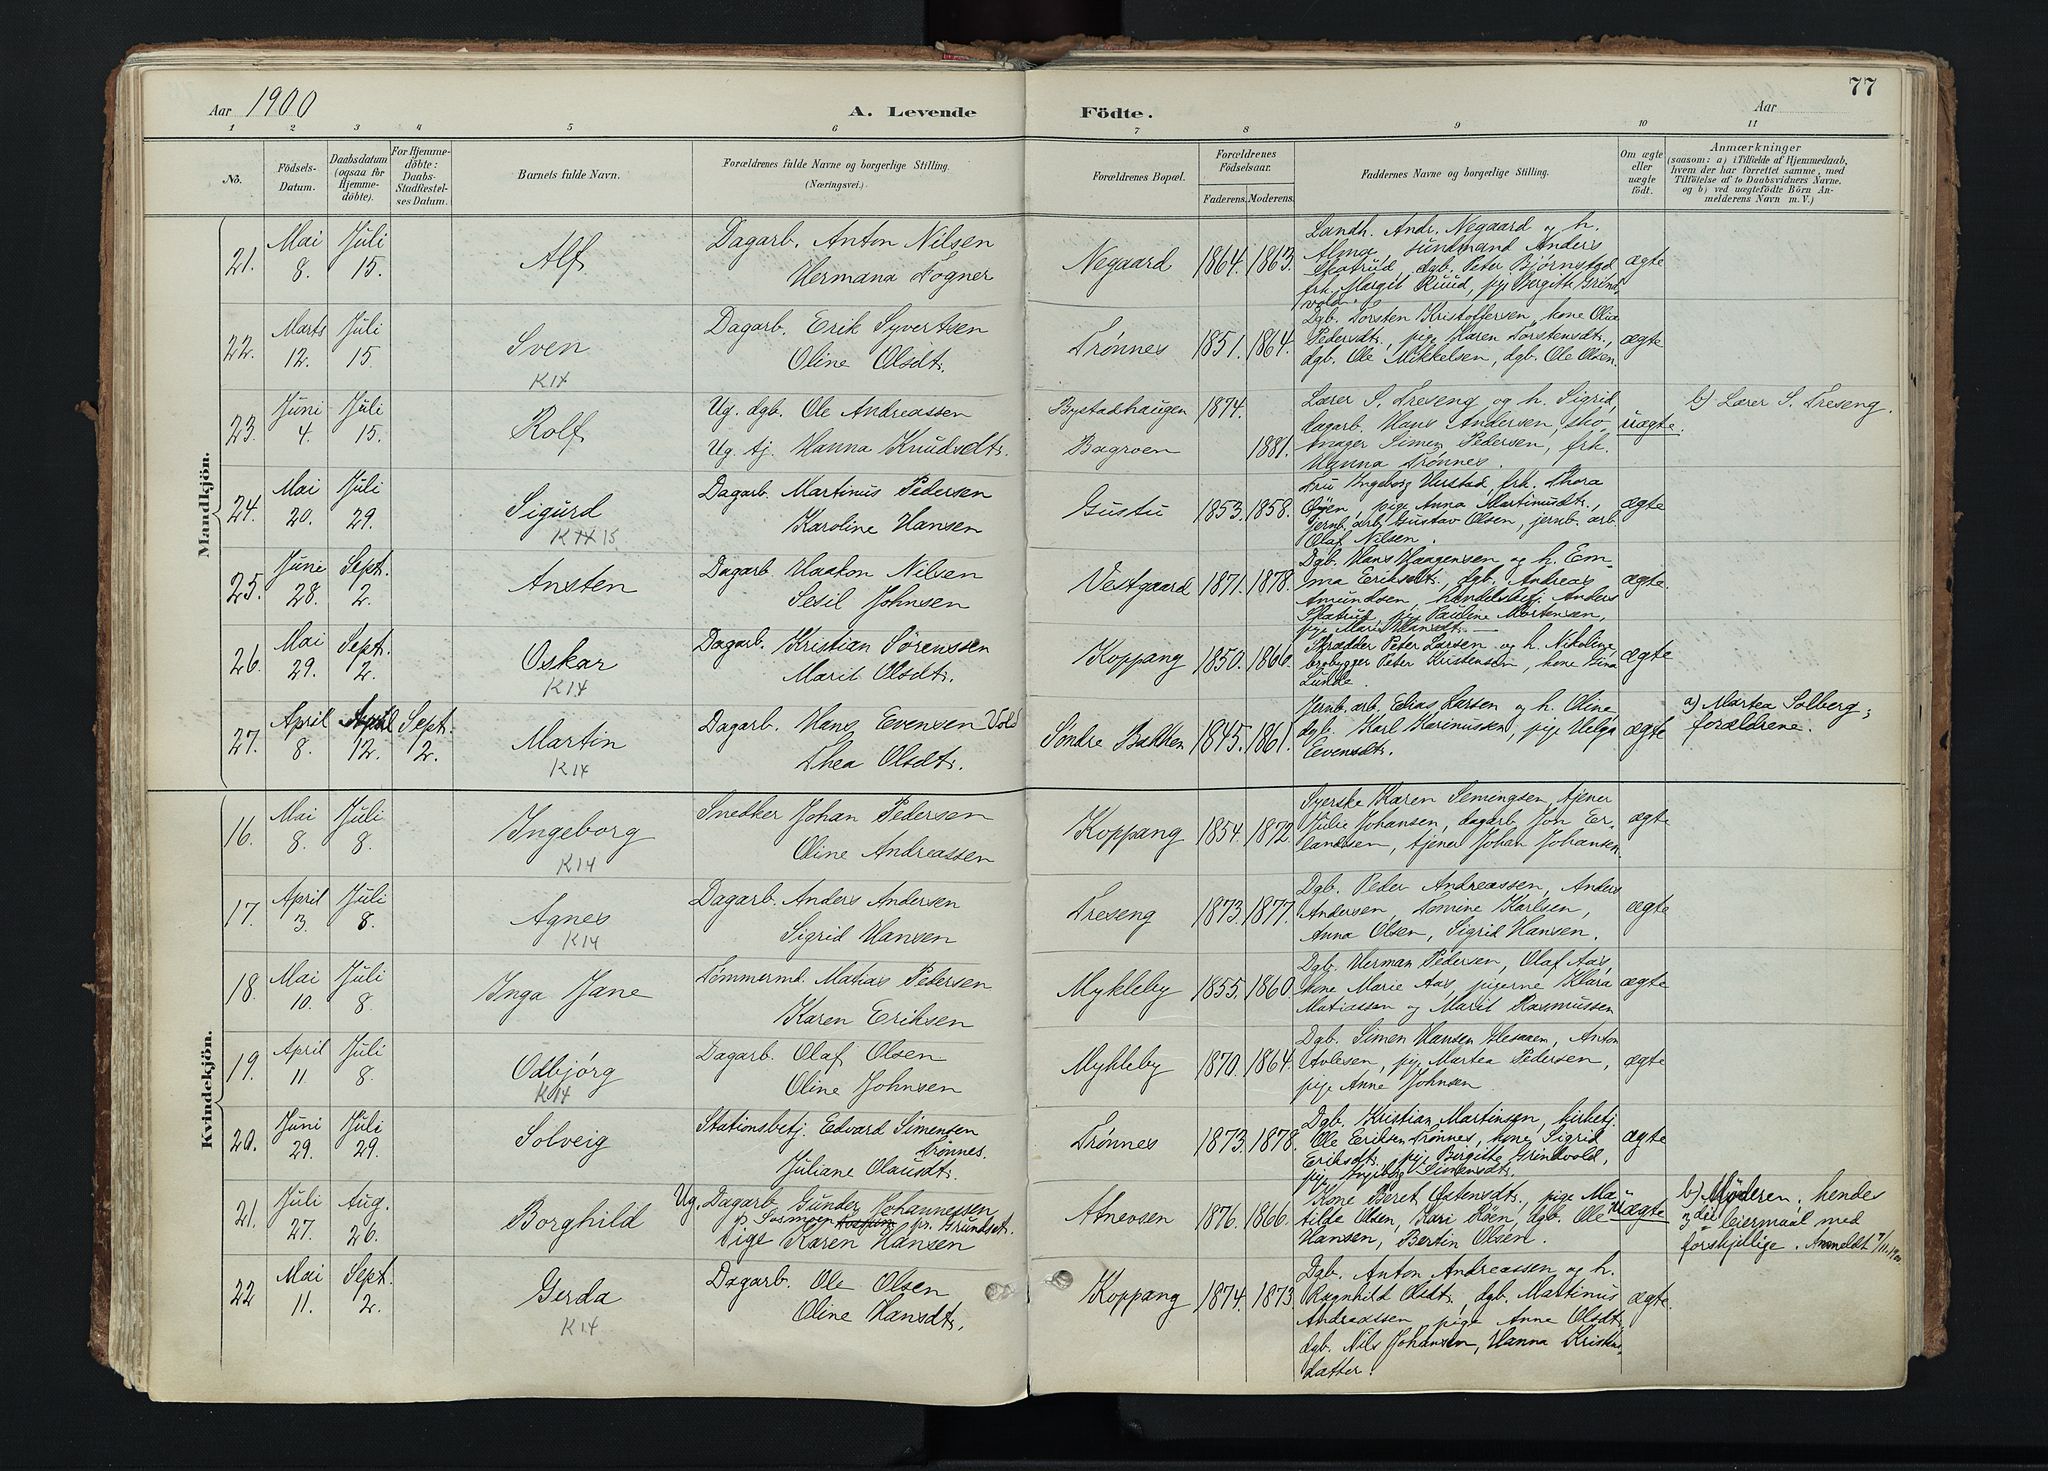 77
Aar 1900
A. Levende Födte.
Aar
1 2 3 4 5 6 7 8 9 10 11
No.
Födsels-Datum.
Daabsdatum (ogsaa for Hjemmedöbte).
For Hjemmedöbte: Daabs-Stadfæstelses Datum.
Barnets fulde Navn.
Forældrenes fulde Navne og borgerlige Stilling. (Næringsvei.)
Forældrenes Bopæl.
Forældrenes Födselsaar.
Faderens. Moderens.
Faddernes Navne og borgerlige Stilling.
Om ægte eller uægte födt.
Anmærkninger (saasom: a) i Tilfælde af Hjemmedaab, hvem der har forrettet samme, med Tilföielse af to Daabsvidners Navne, og b) ved uægtefödte Börn Anmelderens Navn m. V.)
Mandkjön.
21. Mai 8. Juli 15. Alf
Dagarb. Anton Nilsen
Hermana Fogner
Negaard 1864. 1863.
Landh. Andr. Negaard og h.
Alma, Anders
dgb. Peter Bjørnstad
frk. Margit Ruud, pige Bergitte Grind
vold.
ægte
22. Marts 12. Juli 15. Sven
K14
Dagarb. Erik Syvertsen
Oline Olsdtr.
Trønnes 1851. 1864.
Dgb. Torsten Kristoffersen, kone Olia
Pedersdt., pige Karen Torstensdt.,
dgb. Ole Mikkelsen, dgb. Ole Olsen.
ægte
23. Juni 4. Juli 15. Rolf
Ug. dgb. Ole Andreassen
Ug. tj. Hanna Knudsdtr.
Bystadhaugen 1874.
Bagroen 1881.
Lærer S. Treseng og h. Sigrid,
dagarb. Hans Andersen, sko-
mager Simen Pedersen, frk.
Hanna Trønnes.
uægte.
b) Lærer S. Treseng.
24. Mai 20. Juli 29. Sigurd
K 14 15
Dagarb. Martinus Pedersen
Karoline Hansen
Gustu 1853. 1858.
Fru Ingeborg Harstad, frk. Thora
Øien, pige Anna Martinusdt.,
jernb. arb. Gustav Olsen, jernb. arb.
Olaf Nilsen.
ægte
25. June 28. Sept. 2. Ansten
Dagarb. Haakon Nilsen
Sesil Johnsen
Vestgaard 1871. 1878
Dgb. Hans Haagensen og h. Em-
ma Eriksdt., dgb. Andreas
Amundsen, handelsbetj. Anders
Skatrud, pige Pauline Mortensen,
pige Marie Hansdt.
ægte.
26. Mai 29. Sept. 2. Oskar
K14
Dagarb. Kristian Sørenssen
Marit Olsdt.
Koppang 1850. 1866.
Skrædder Peter Larsen og h. Nikoline,
brobygger Peter Kristensen, kone Gina
Lunde.
ægte
27. April 8. April 12. Sept. 2. Martin
K14
Dagarb. Hans Evensen Vold
Thea Olsdt.
Søndre Bakken 1845. 1861.
Jernb. arb. Elias Larsen og h. Oline,
dgb. Karl Karinussen, pige Helga
Evensdt.
ægte
a) Martea Solberg;
forældrene.
Kvindekjön.
16. Mai 8. Juli 8. Ingeborg
K14
Snedker Johan Pedersen
Oline Andreassen
Koppang 1854. 1872.
Syerske Karen Semingsen, tjener
Julie Johansen, dagarb. Jon Er-
landsen, tjener Johan Johansen.
ægte
17. April 3. Juli 8. Agnes
K14
Dagarb. Anders Andersen
Sigrid Hansen
Treseng 1873. 1877.
Dgb. Peder Andreassen, Anders
Andersen, Tomine Karlsen,
Anna Olsen, Sigrid Hansen.
ægte
18. Mai 10. Juli 8. Inga Jane
Tømmermd. Matias Pedersen
Karen Eriksen
Mykleby 1855. 1860.
Dgb. Herman Pedersen, Olaf Aas,
kone Marie Aas, pigerne Klara
Matiassen og Marit Rasmussen
ægte
19. April 11. Juli 8. Odbjørg
K14
Dagarb. Olaf Olsen
Oline Johnsen
Mykleby 1870. 1864.
Dgb. Simen Hansen, Anton
pige Martea Pedersen,
pige Anne Johnsen
ægte
20. Juni 29. Juli 29. Solveig
Stationsbetj. Edvard Simensen
Trønnes.
Juliane Olausdt.
Trønnes 1873. 1878.
Dgb. Kristian Martinsen, kirketj.
Ole Eriksen Trønnes, kone Sigrid
Eriksdt., pige Birgitte Grindvold,
pige Ingeborg Simensdt.
ægte
21. Juli 27. Aug. 26. Borghild
Ug. Dagarb. Gunder Johannessen
pr. Grundset.
Pige Karen Hansen
Atneosen 1876. 1866.
Kone Beret Østensdt., pige Ma-
tilde Olsen, Kari Moen, dgb. Ole
Hansen, Bertin Olsen.
uægte
b) Moderen; hendes
3die leiermaal med
forskjellige. Anmeldt 7/11.1900
22 Mai 11. Sept. 2. Gerda
K14
Dagarb. Ole Olsen
Oline Hansdt.
Koppang 1874. 1873.
Dgb. Anton Andreassen og h.
Ragnhild Olsdt., dgb. Martinus
Andreassen, pige Anne Olsdt.,
dgb. Nils Johansen, Hanna Kristens-
datter.
ægte.